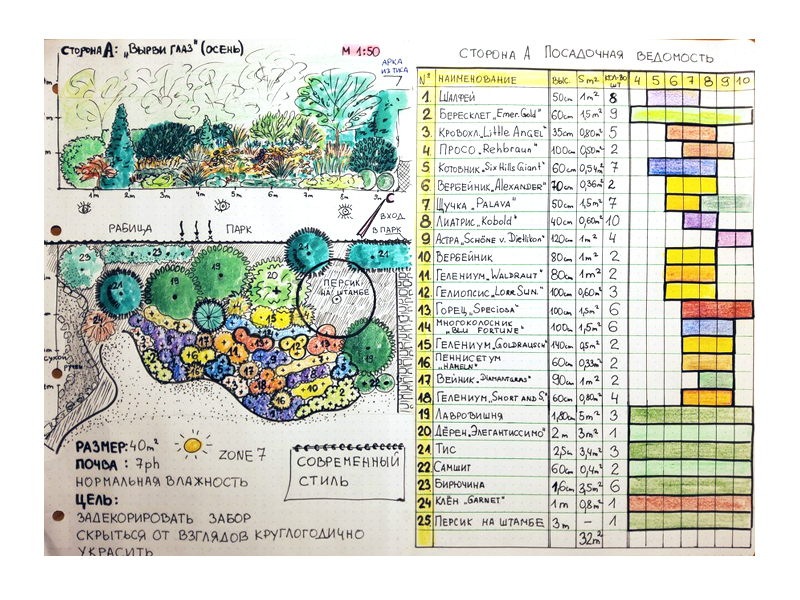 Сторона А: „Вырви глаз" (осень)
М 1:50
АРКА
ИЗ ТИКА
1m 2m 3m 4m 5m 6m 7m 8m
С
ВХОД
В ПАРК
РАБИЦА
ПАРК
ПЕРСИК
НА ШТАМБЕ
РАЗМЕР: 40 m²
ПОЧВА : 7ph
НОРМАЛЬНАЯ ВЛАЖНОСТЬ
ZONE 7
СОВРЕМЕННЫЙ
СТИЛЬ
ЦЕЛЬ:
ЗАДЕКОРИРОВАТЬ ЗАБОР
СКРЫТЬСЯ ОТ ВЗГЛЯДОВ КРУГЛОГОДИЧНО
УКРАСИТЬ
СТОРОНА А ПОСАДОЧНАЯ ВЕДОМОСТЬ
№ НАИМЕНОВАНИЕ ВЫС. S m² КОЛ-ВО ШТ 4 5 6 7 8 9 10
1. ШАЛФЕЙ 50cm 1m² 8
2 БЕРЕСКЛЕТ „Emer. Gold" 60cm 1,5m² 9
3 КРОВОХЛ. „Little Angel" 35cm 0,80m² 5
4 ПРОСО „Rehbraun" 100cm 0,50m² 2
5 КОТОВНИК „Six Hills Giant" 60cm 0,54m² 7
6 ВЕРБЕЙНИК „ALEXANDER" 70cm 0,36m² 2
7 ЩУЧКА „PALAVA" 50cm 1,5m² 7
8 ЛИАТРИС „Kobold" 40cm 0,60m² 10
9 АСТРА „SCHÖNE V. Dietlikon" 120cm 1m² 4
10 ВЕРБЕЙНИК 80cm 1m² 2
11 ГЕЛЕНИУМ „WALDRAUT" 80cm 1m² 2
12 ГЕЛИОПСИС „LORR. SUN." 100cm 0,60m² 3
13 ГОРЕЦ „SPECIOSA" 100cm 1,5m² 6
14 МНОГОКОЛОСНИК „BLU FORTUNE" 100cm 1,5m² 6
15 ГЕЛЕНИУМ „GOLDRAUSCH" 140cm 0,5m² 2
16 ПЕННИСЕТУМ „HAMELN" 60cm 0,33m² 2
17 ВЕЙНИК „DIAMANTGRAS" 90cm 1m² 2
18 ГЕЛЕНИУМ „SHORT AND S." 60cm 0,80m² 4
19 ЛАВРОВИШНЯ 1,80m 5m² 3
20 ДЁРЕН „ЭЛЕГАНТИССИМО" 2m 3m² 1
21 ТИС 2,5m 3,4m² 3
22 САМШИТ 60cm 0,4m² 2
23 БИРЮЧИНА 1,6m 3,5m² 6
24 КЛЁН „GARNET" 1m 0,8m² 1
25 ПЕРСИК НА ШТАМБЕ 3m – 1
32m²